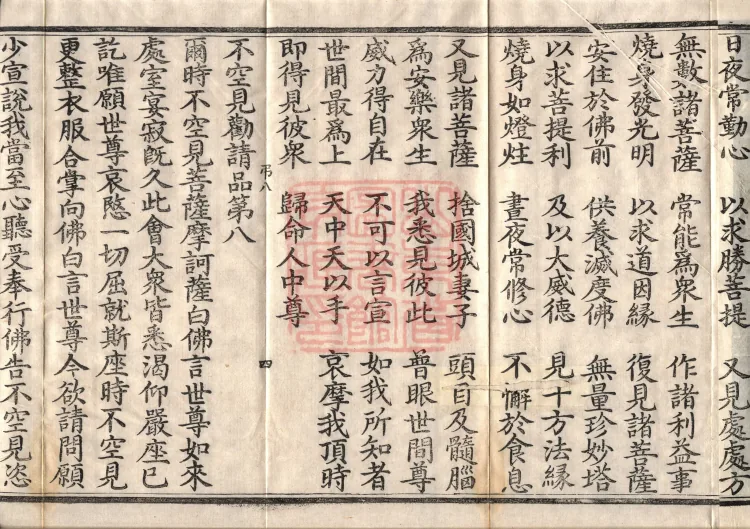 日夜常勤心 以求勝菩提 又見處處方
無數諸菩薩 常能爲衆生 作諸利益事
燒身發光明 以求道因緣 復見諸菩薩
安住於佛前 供養滅度佛 無量珍妙塔
以求菩提利 及以大威德 見十方法緣
燒身如燈炷 晝夜常修心 不懈於食息
又見諸菩薩 捨國城妻子 頭目及髓腦
爲安樂衆生 我悉見彼此 普眼世間尊
威力得自在 不可以言宣 如我所知者
世間最爲上 天中天以手 哀摩我頂時
即得見彼衆 歸命人中尊
弔八 四
不空見勸請品第八
爾時不空見菩薩摩訶薩白佛言世尊如來
處室宴寂旣久此會大衆皆悉渴仰嚴座已
訖唯願世尊哀愍一切屈就斯座時不空見
更整衣服合掌向佛白言世尊今欲請問願
少宣說我當至心聽受奉行佛告不空見恣